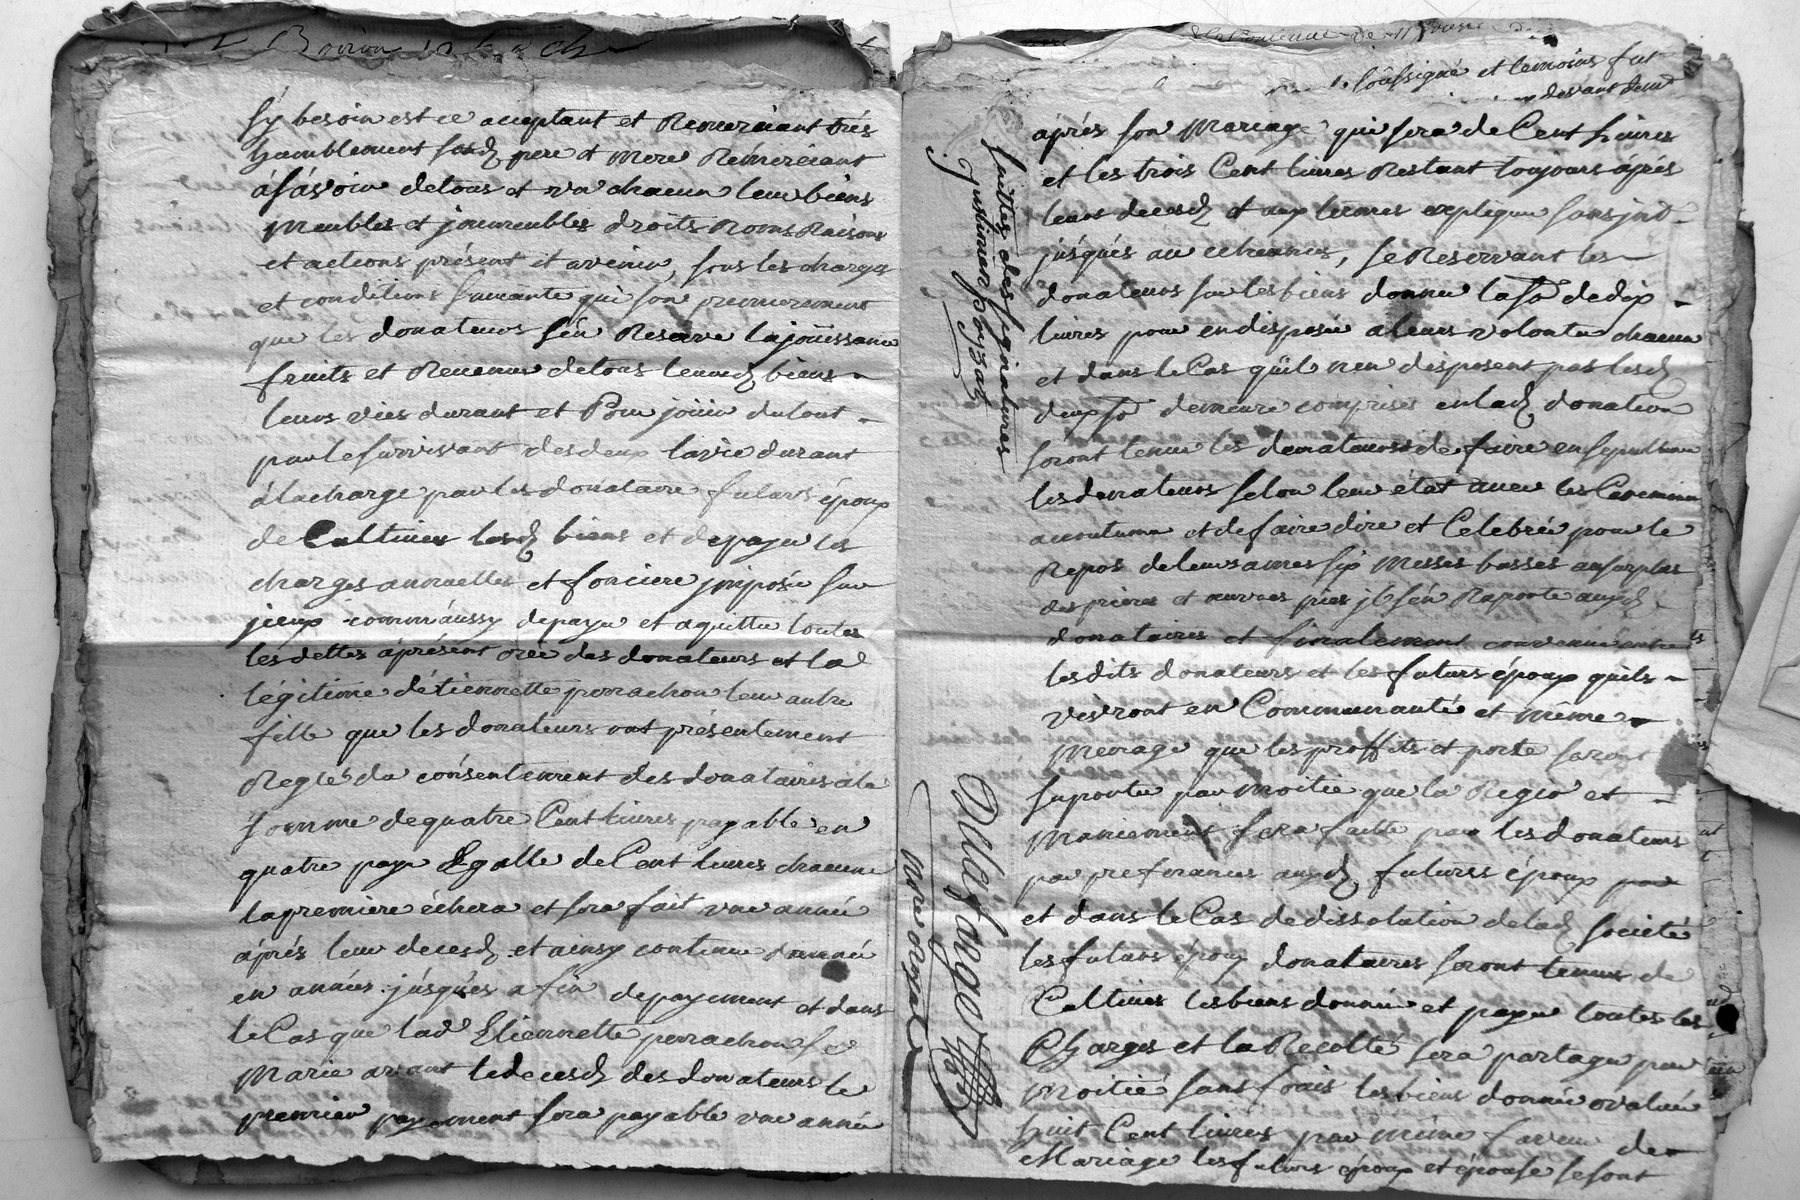 sy besoin est ce acceptant et Remerciant trés
humblement sesd pere et mere Rémerciant
ásávoir detous et un chacun leur biens
meubles et jmmeubles droits Noms Raisons
et actions présent et avenir, sous les charges
et conditions suivante qui son premierement
que les donateurs sén Reserve lajoüissance
fruits et Revenus detous leursd biens
leurs vies durant et Pour joüir dutout
par lesurvivant desdeux lavie durant
álacharge par les donataire futurs époux
de Cultiver lesd biens et depayer les
charges annuelles et fonciere jmposée sur
jceux comm'aussy depayer et aquitter toutes
les dettes áprésent crée des donateurs et la
légitime détiennette perrachon leur autre
fille que les donateurs ont présentement
Reglés du consentement des donataires ála
somme dequatre Cent livres payable en
quatre paye Egalle de Cent livres chacune
lapremiere échera et sera fait une année
áprés leur decesd et ainsy continuer dannée
en année jusqués a fin depayement et dans
leCas que lad Etiennette perrachon se
Marie avant ledecesd des donateurs le
premier payement sera payable une année
soûssigné et temoins fut
devant
áprés son Mariage qui sera de Cent livres
et les trois Cent livres Restant toujours áprés
leurs decesd et aux termes expliqué sans
jusqués au echeances, se Reservant les
donateurs sur les biens donner la so dedix
livres pour en disposer a leurs volonté chacun
et dans le Cas qu'il nen disposent pas lesd
deux so demeure comprises enlad donation
seront tenu les donataires de faire ensepulturer
les donateurs selon leur état avec les Ceremonie
accoutumé et de faire dire et Celebrée pour le
Repos deleurs ames six Messes basses ausurplus
des prieres et œuvres pies jls sén Raporte auxd
donataires et finalement convenu entre
lesdits donateurs et les futurs époux quils
vivront en Communauté et même
Menage que les proffits et perte seront
suporter par moitie que la Regie et
Maniement sera faitte par les donateurs
par preferance auxd futurs époux
et dans le Cas de dissolution delad societé
les futurs époux donataires seront tenus de
Cultiver les biens donnée et payer toutes les
Charges et la Recolte sera partager par
Moitié sans frais les biens donnée evaluée
huit Cent livres par même faveur de
Mariage les futurs époux et épouse se sont
faittes des signatures
Dellafarge
Nore Royal